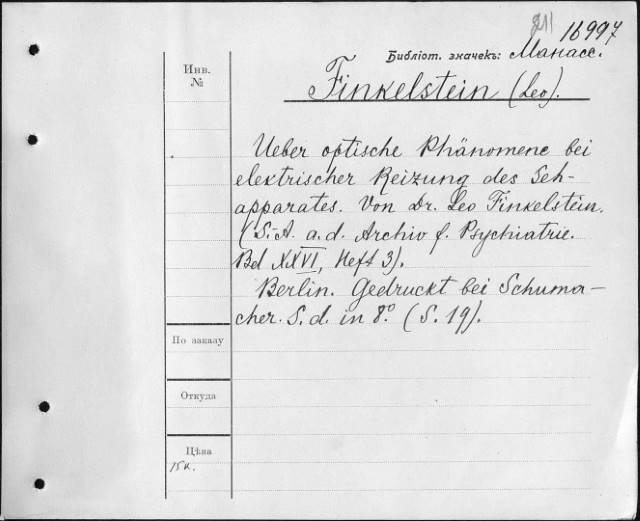 16997
Библiот. значекъ: Манасс.
Инв.
№
Finkelstein (Leo).
Ueber optische Phänomene bei
elektrischer Reizung des Seh-
apparates. Von Dr. Leo Finkelstein.
(S.-A. a. d. Archiv f. Psychiatrie.
Bd XXVI, Heft 3).
Berlin. Gedruckt bei Schuma-
cher. S. d. in 8.º (S. 19).
По заказу
Откуда
Цѣна
15к.